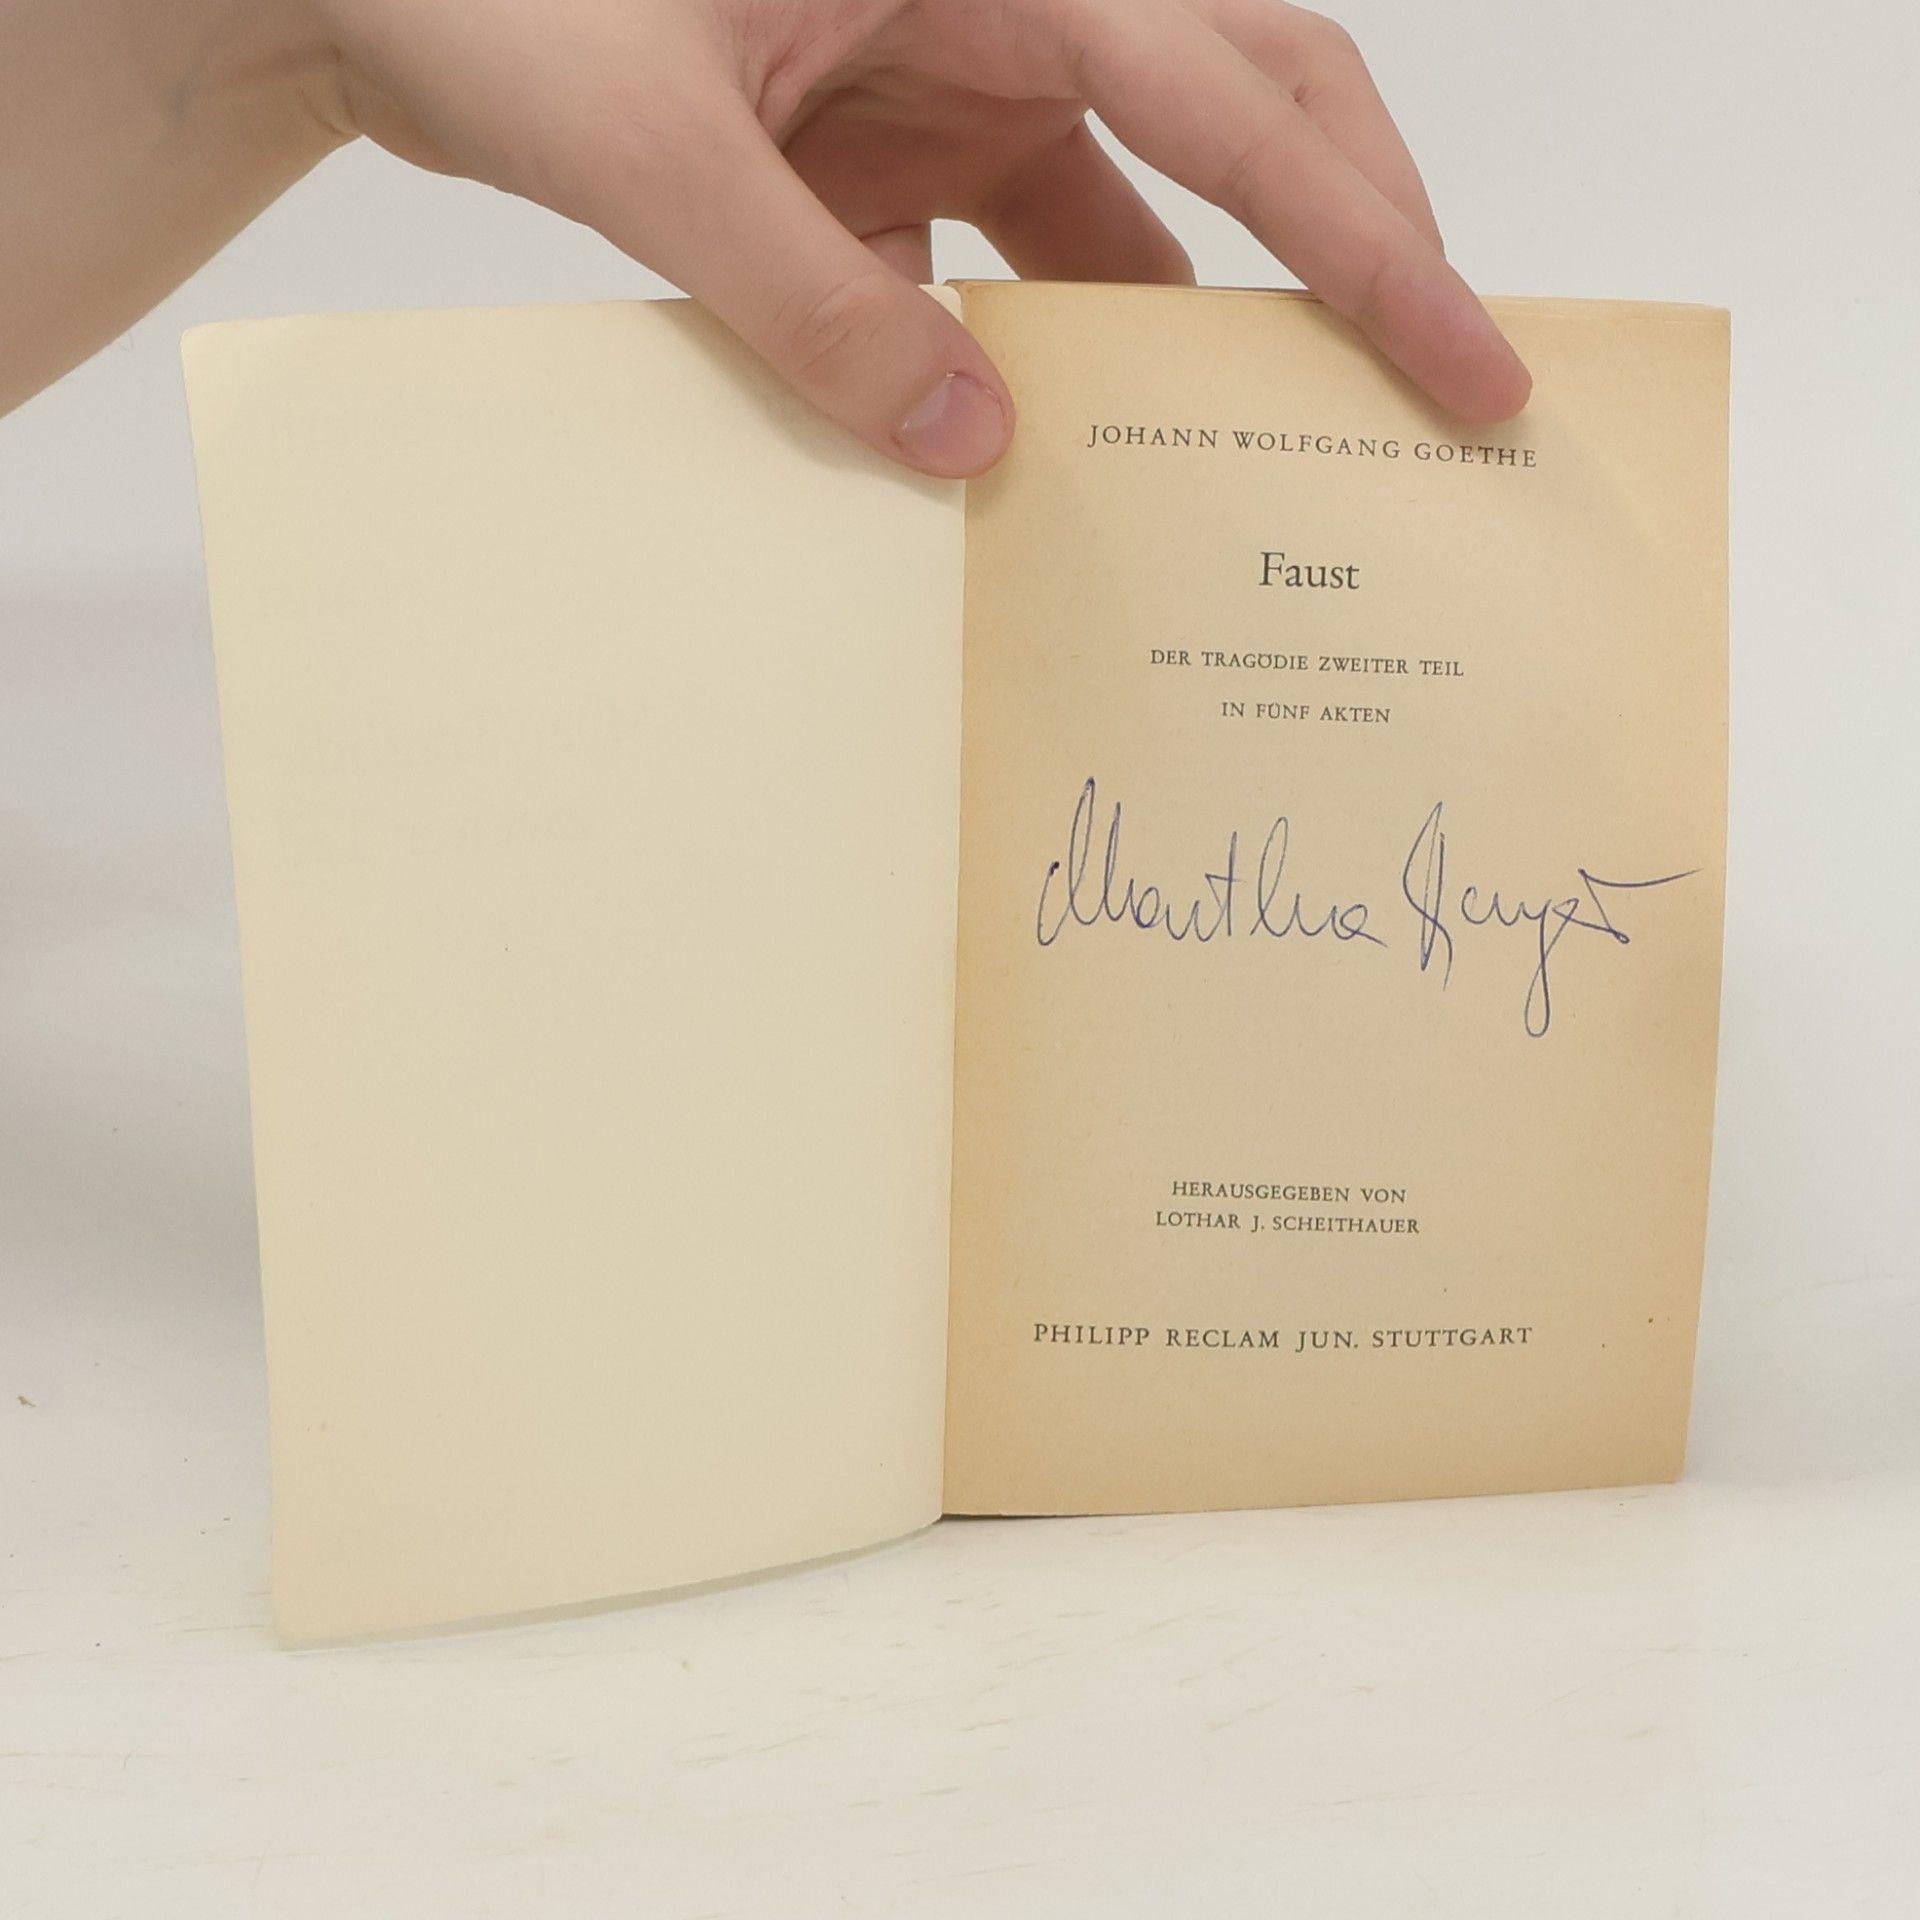 JOHANN WOLFGANG GOETHE
Faust
DER TRAGÖDIE ZWEITER TEIL
IN FÜNF AKTEN
Martha
HERAUSGEGEBEN VON
LOTHAR J. SCHEITHAUER
PHILIPP RECLAM JUN. STUTTGART